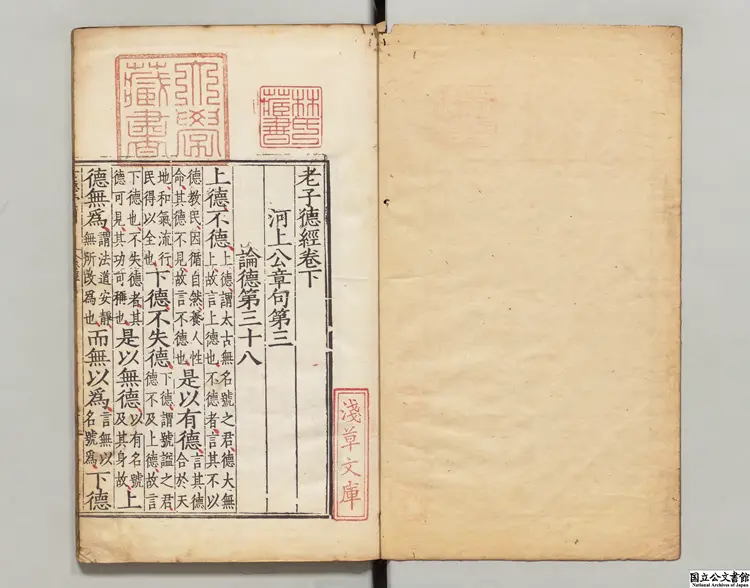 林氏藏書
大學藏書
老子德經卷下
河上公章句第三
論德第三十八
上德不德上德謂太古無名號之君德大無上故言上德也不德者言其不以
德教民因循自然養人性命其德不見故言不德也是以有德言其德合於天
地和氣流行民得以全也下德不失德下德謂號謚之君德不及上德故言
下德也不失德者其德可見其功可稱也是以無德以有名號及其身故上
德無為謂法道安靜無所改為也而無以為言無以名號為下德
淺草文庫
国立公文書館
National Archives of Japan